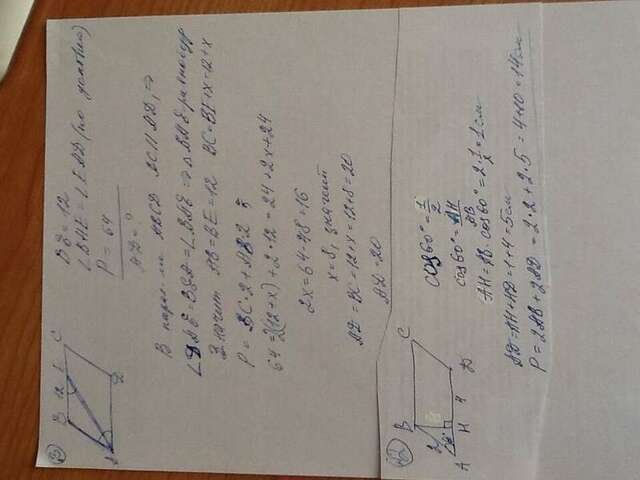 B 12 E C
A D
BE = 12
∠BAE = ∠EAD (по условию)
P = 64
AD = ?
В парал-ме ABCD BC || AD, ⇒
Значит AB = BE = 12 BC = BE + x = 12 + x
P = BC·2 + AB·2
64 = 2(12+x) + 2·12 = 24 + 2x + 24
2x = 64 - 48 = 16
x = 8, значит
AD = BC = 12 + x = 12 + 8 = 20
AD = 20
B C
2
60°
A H 4 D
cos60° = 1/2
cos60° = AH/AB
AH = AB · cos60° = 2 · 1/2 = 1 см
AD = AH + HD = 1 + 4 = 5 см
P = 2AB + 2AD = 2·2 + 2·5 = 4+10 = 14 см